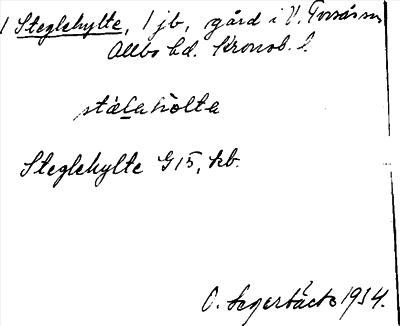 1 Steglehylte, 1 jb, gård i V. Torsås sn
Allbo hd. Kronob. l
stálahòlta
Steglehylte G 15, kb.
O. Segerbäck 1934.